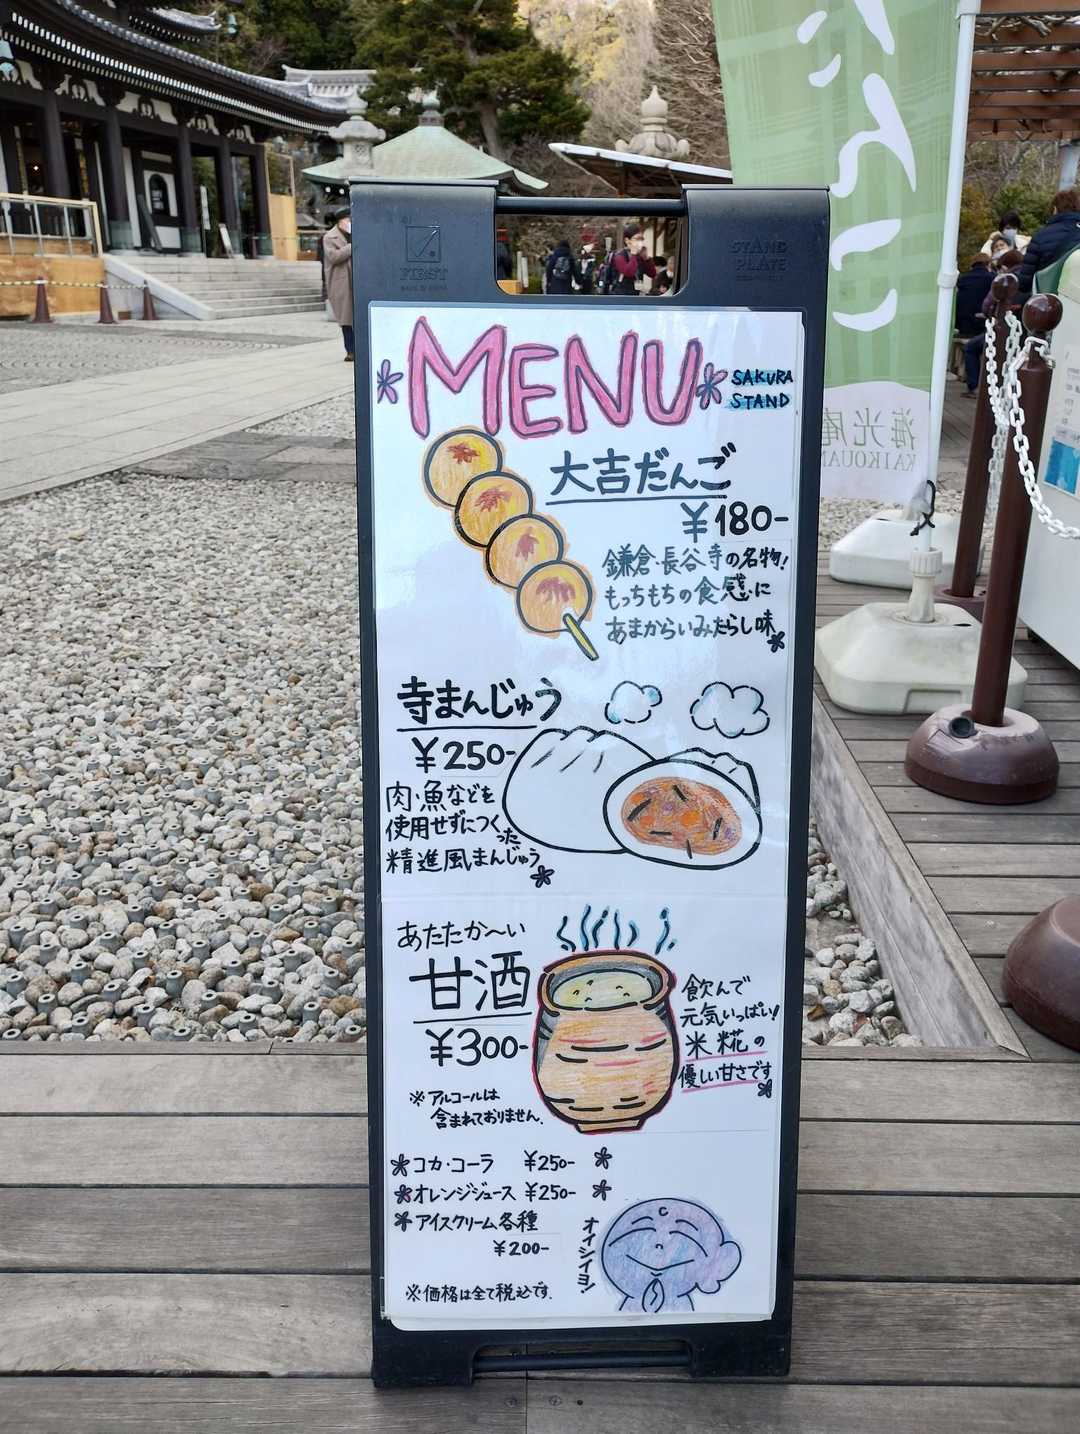 FIRST
STAND
PLATE
MENU
SAKURA
STAND
大吉だんご
¥180-
鎌倉・長谷寺の名物!
もっちもちの食感に
あまからいみたらし味
寺まんじゅう
¥250-
肉・魚などを
使用せずにつくった
精進風まんじゅう
あたたか〜い
甘酒
¥300-
※アルコールは
含まれておりません.
飲んで
元気いっぱい!
米糀の
優しい甘さです
コカ・コーラ ¥250-
オレンジジュース ¥250-
アイスクリーム各種
¥200-
オイシイヨ!
※価格は全て税込です.
だんご
海光庵
KAIKOUAN